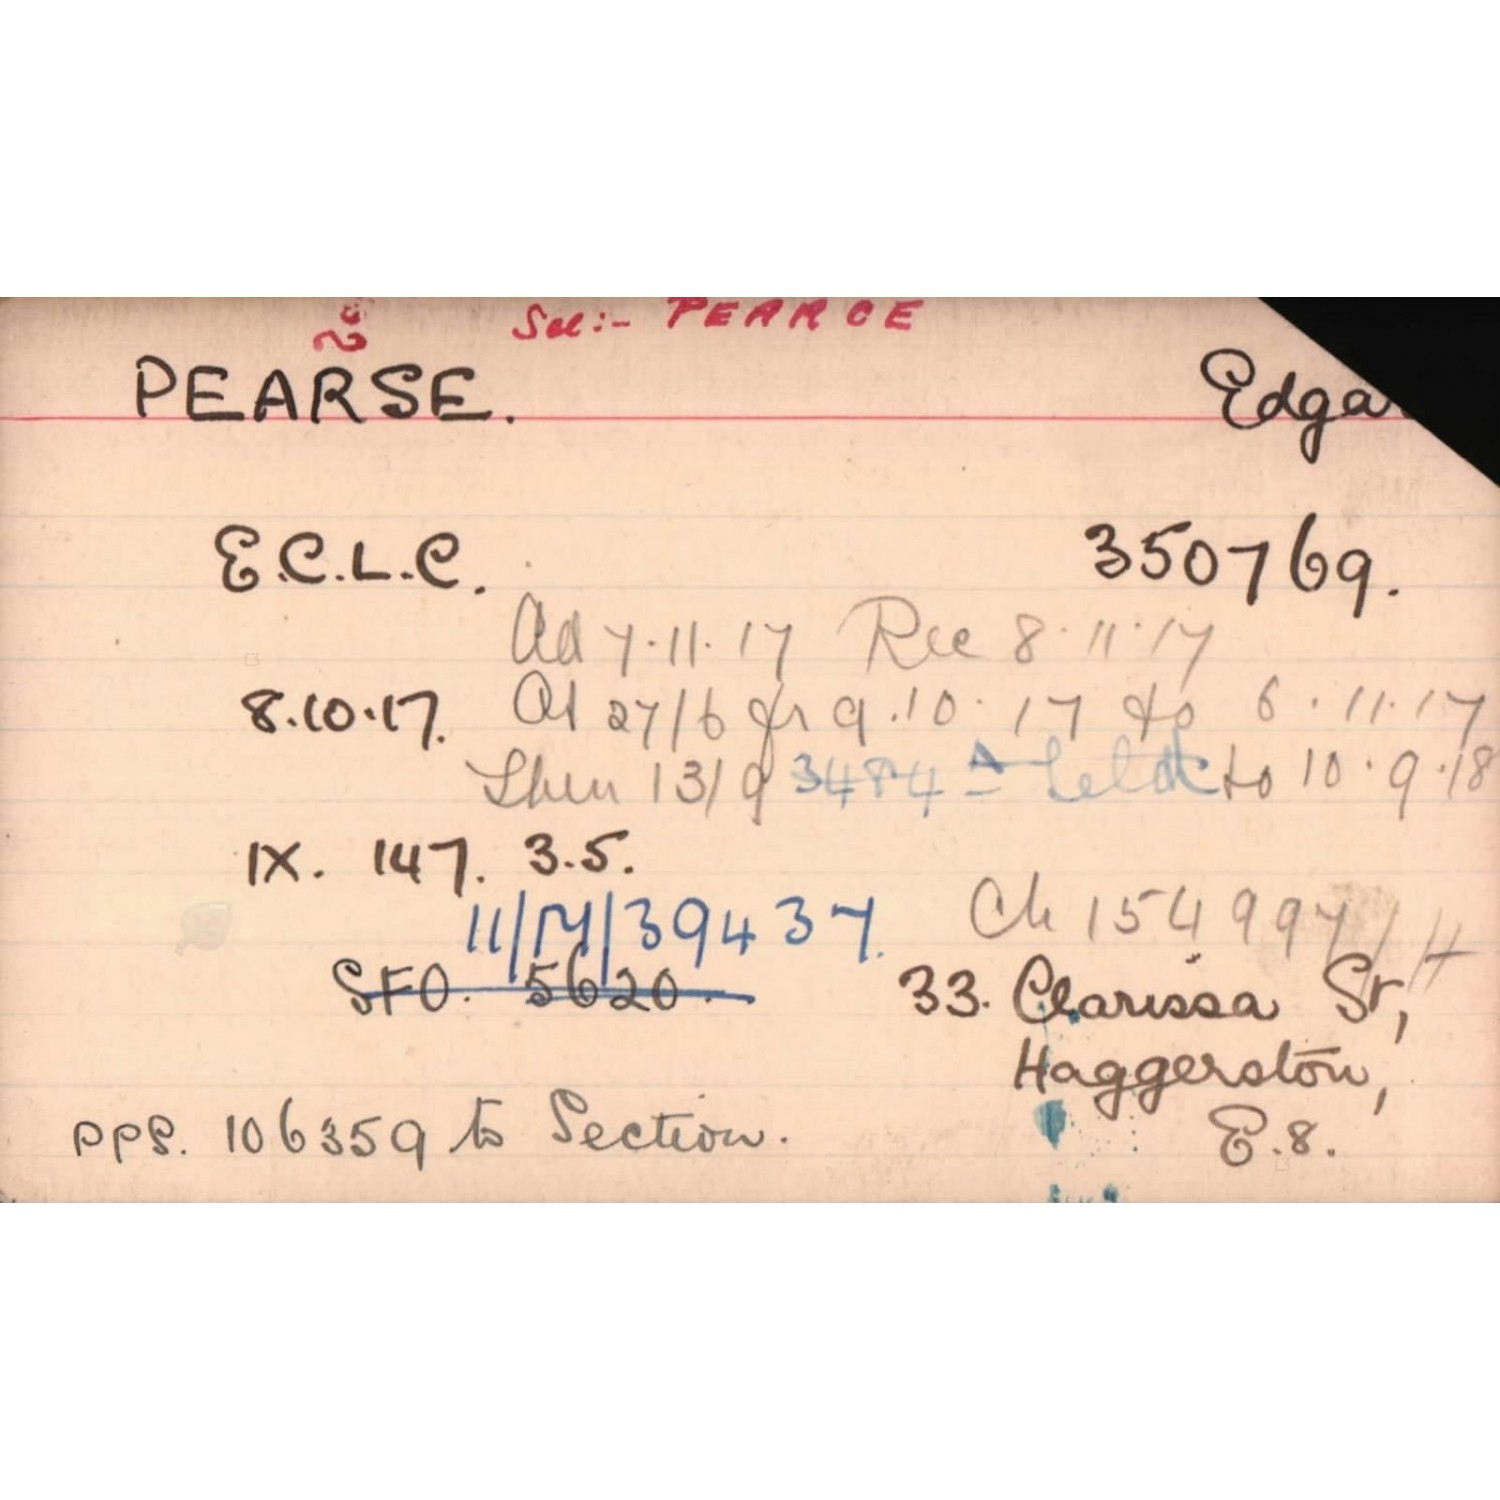 See:- PEARCE
PEARSE. Edgar
E.C.L.C. 350769.
Ad 7.11.17 Rec 8.11.17
8.10.17. At 27/6 fr 9.10.17 to 6.11.17
Then 13/9 3484 to 10.9.18
IX. 147. 3.5.
11/M/39437. Ch 154997/H
SFO. 5620. 33. Clarissa St,
Haggerston,
PPS. 106359 to Section. E.8.